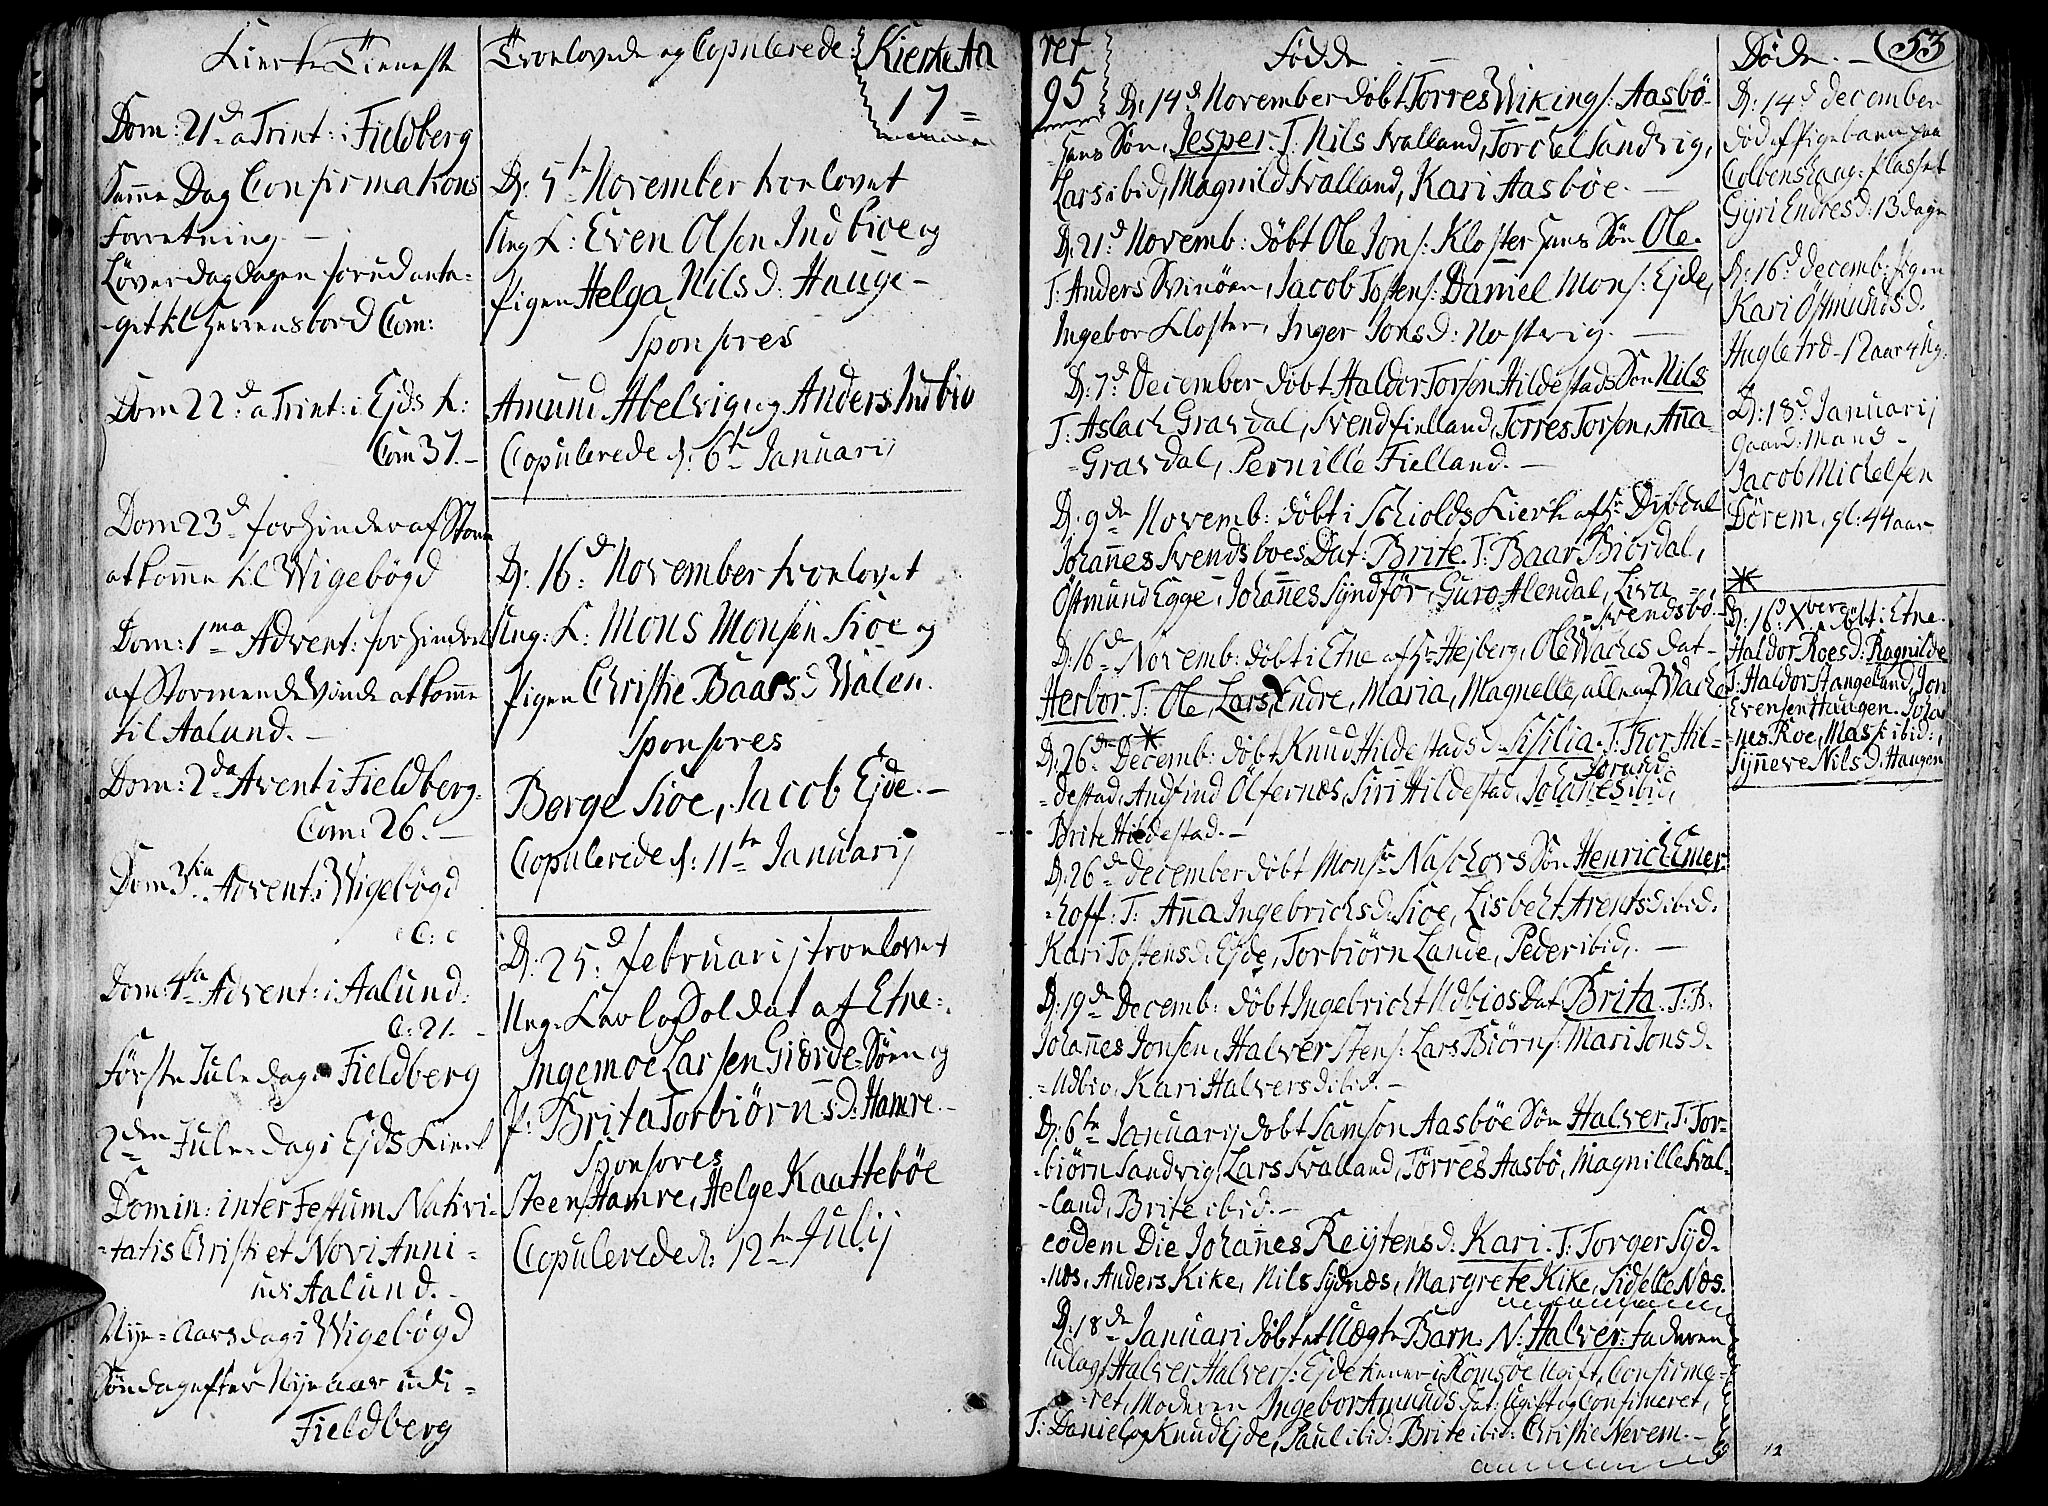 Kierke Tieneste
Dom: 21d a Trint: i Fieldberg
Samme Dag Confirmations
Forretning. —
Løverdagdagen forud anta-
-get til Herrens bord Com:
Dom 22d a Trint: i Ejds K:
Com 37. —
Dom 23d forhinder af Storm
at komme til Wigebögd
Dom: 1ma Advent: forhindret
af Stormende Vinde at komme
til Aalund. —
Dom: 2da Avent i Fieldberg.
Com: 26. —
Dom 3tia Advent i Wigebögd
C:
Dom: 4ta Advent: i Aalund:
C: 21. —
Første Jule dag i Fieldberg
2den Jule-Dag i Ejds Kierk
Domin: inter Festum Nativi-
-tatis Christi et Novi Anni -
udi Aalund. -
Nye-Aarsdag i Wigebögd
Søndag efter Nye aar udi -
Fieldberg
Troelovede og Copulerede:
Kierke Aa
17 =
D: 5te November troelovet
Ung K: Even Olsen Indbioe og
Pigen Helga Nils D: Hauge -
Sponsores
Amund Abelvig og Anders Indbio
Copulerede d: 6te Januarij
D: 16d November troelovet
Ung: K: Mons Monsen Sioe og
Pigen Christie Baars D Walen.
Sponsores
Børge Sioe, Jacob Ejde. —
Copulerede d: 11te Januarij
D: 25d februarij troelovet
Ung Karl og Soldat af Etne:
Ingemoe Larsen Giørde-Søen og
P: Brita Torbiörns D: Hamre. -
Sponsores
Steen Hamre, Helge Kaattebøe
Copulerede d: 12te Julij
ret
95
Födde
D: 14d November döbt Torres Wikings: Aasbö-
-hans Søn, Jesper. T: Nils Svalland, Torchel Sandvig,
Lars ibid, Magnild Svalland, Kari Aasbøe. —
D: 21d Novemb: döbt Ole Jons: Kloster hans Søn Ole.
T: Anders Svinöen, Jacob Tostens: Daniel Mons: Ejde,
Ingebor Kloster, Inger Jons D: Nostvig. —
D: 7d December döbt Haldor Torsen Hildestads Søn Nils
T: Aslach Gravdal, Svend Fielland, Torres Torsen, Ana
-Gravdal, Pernille Fielland. —
D: 9de Novemb: döbt i Schiolds Kierk af Hr Dybdal
Johannes Svendsboes Dat: Brite. T: Baar Biordal,
Östmund Egge, Johannes Syndför, Guro Alendal, Liva
- Svendsbö. -
D: 16d Novemb: döbt i Etne af Hr Hejberg, Ole Waches Dat-
Herbor. T: Ole, Lars, Endre, Maria, Magnelle, alle af Wache
*
D: 26de Decemb: döbt Knud Hildestads D. Sisilia. T: Thor Hil-
-destad, Andfind Ölfernæs, Siri Hildestad, Johanes ibid,
Brite Hildestad. —
D: 26de december döbt Monsr Naschovs Søn Henrich Emer-
-hoff: T: Ana Ingebrichs D: Sioe, Lisbeht Arents D ibid.
Kari Tostens D: Ejde, Torbiörn Lande, Peder ibid. —
D: 19de Decemb: döbt Ingebricht Udbios Dat: Brita. T:
Johannes Jonsen, Halver Stens: Lars Biörns: Mari Jons D.
-Udbio, Kari Halvers D ibid. —
D: 6te Januarij döbt Samson Aasböe Søn Halver, T: Tor-
-biörn Sandvig, Lars Svalland, Törres Aasbö, Magnille Sval-
-land, Brite ibid. —
eodem Die Johannes Reijtens D: Kari. T: Torger Syd-
-næs, Anders Kike, Nils Sydnæs, Margrete Kike, Sidselle Næs.
D: 18de Januari döbt et Uægte Barn. N: Halver: faderen
udlagt Halver Halvers: Ejde tiener i Romsöe Ugift, Confirme-
-ret, Moderen Ingebor Amunds Dat: Ugift og Confirmeret,
T: Daniel og Knud Ejde, Paul ibid: Brite ibid: Christie Nerem. -
Døde. —
53
D: 14d december
død et Pigebarn paa
Colbenshaug: flasset
Gyri Endres D: 13 dage
D: 16d decemb: pigen
Kari Östmunds D.
Hugletrd - 12 aar 4 Ug:
D: 18d Januarij
gaard: Mand -
Jacob Michelsen
Dörem, gl: 44 aar
*
D: 16d Xber döbt i Etne
Haldor Roes D: Ragnilde
T: Haldor Stangeland, Jon
Evensen Haugen. Joha-
-nes Roe, Massi ibid:,
Synneve Nils D. Haugen
12